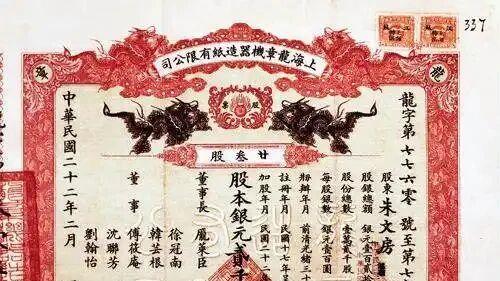 337
上海龍章機器造紙有限公司
龍
章
股票
廿叁股
龍字第七七六零號至第七
股東朱文房
股銀總額 銀元壹百
股份總數 壹萬貳千股
每股銀數 銀元壹百圓
創辦年月 前清光緒三十
註冊年月 民國十七年
加股年月 民國二十
股本銀元貳千
董事長 龐萊臣
董事
徐冠南
韓芸根
傅筱庵
沈聯芳
劉翰怡
中華民國二十二年二月